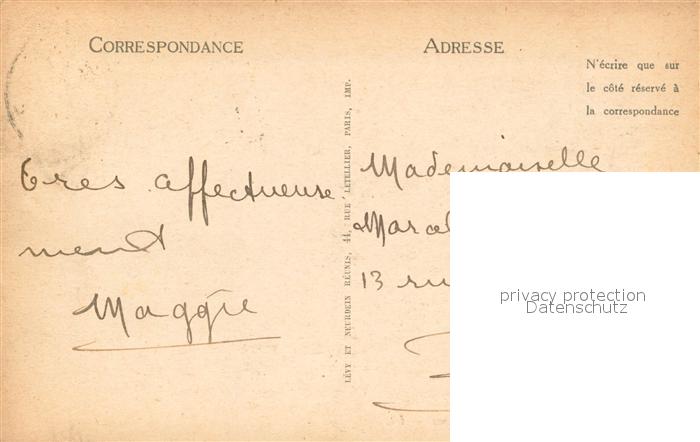 CORRESPONDANCE
ADRESSE
N'écrire que sur
le côté réservé à
la correspondance
Très affectueuse
ment
Maggie
LÉVY ET NEURDEIN RÉUNIS, 44, RUE LETELLIER, PARIS, IMP.
Mademoiselle
Marcel
13 ru
privacy protection
Datenschutz